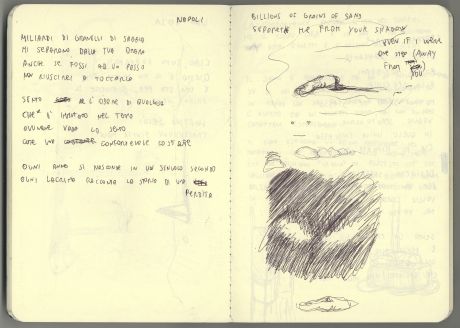 NAPOLI
MILIARDI DI GRANELLI DI SABBIA
MI SEPARANO DALLA TUA OMBRA
ANCHE SE FOSSI AD UN PASSO
NON RIUSCIREI A TOCCARLO
SENTO L'ODORE DI QUALCOSA
CHE È INVIATO NEL TEMPO
OVUNQUE VADO LO SENTO
COME UN CONFORTEVOLE
OGNI ANNO SI NASCONDE IN UN SINGOLO SECONDO
OGNI LACRIMA RACCONTA LA STORIA DI UNA
PERDITA
BILLIONS OF GRAINS OF SAND
SEPARATE ME FROM YOUR SHADOW
EVEN IF I WERE
ONE STEP AWAY
FROM
YOU